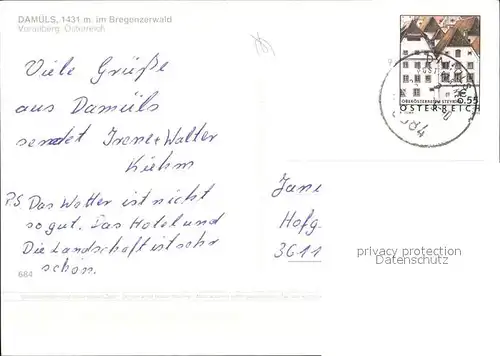 DAMÜLS, 1431 m. im Bregenzerwald
Vorarlberg-Österreich
Viele Grüße
aus Damüls
sendet Irene + Walter
Kiehm
P.S Das Wetter ist nicht
so gut. Das Hotel und
Die Landschaft ist sehr
schön.
684
0.55
ÖSTERREICH
Jane
Hofg
3611
privacy protection
Datenschutz